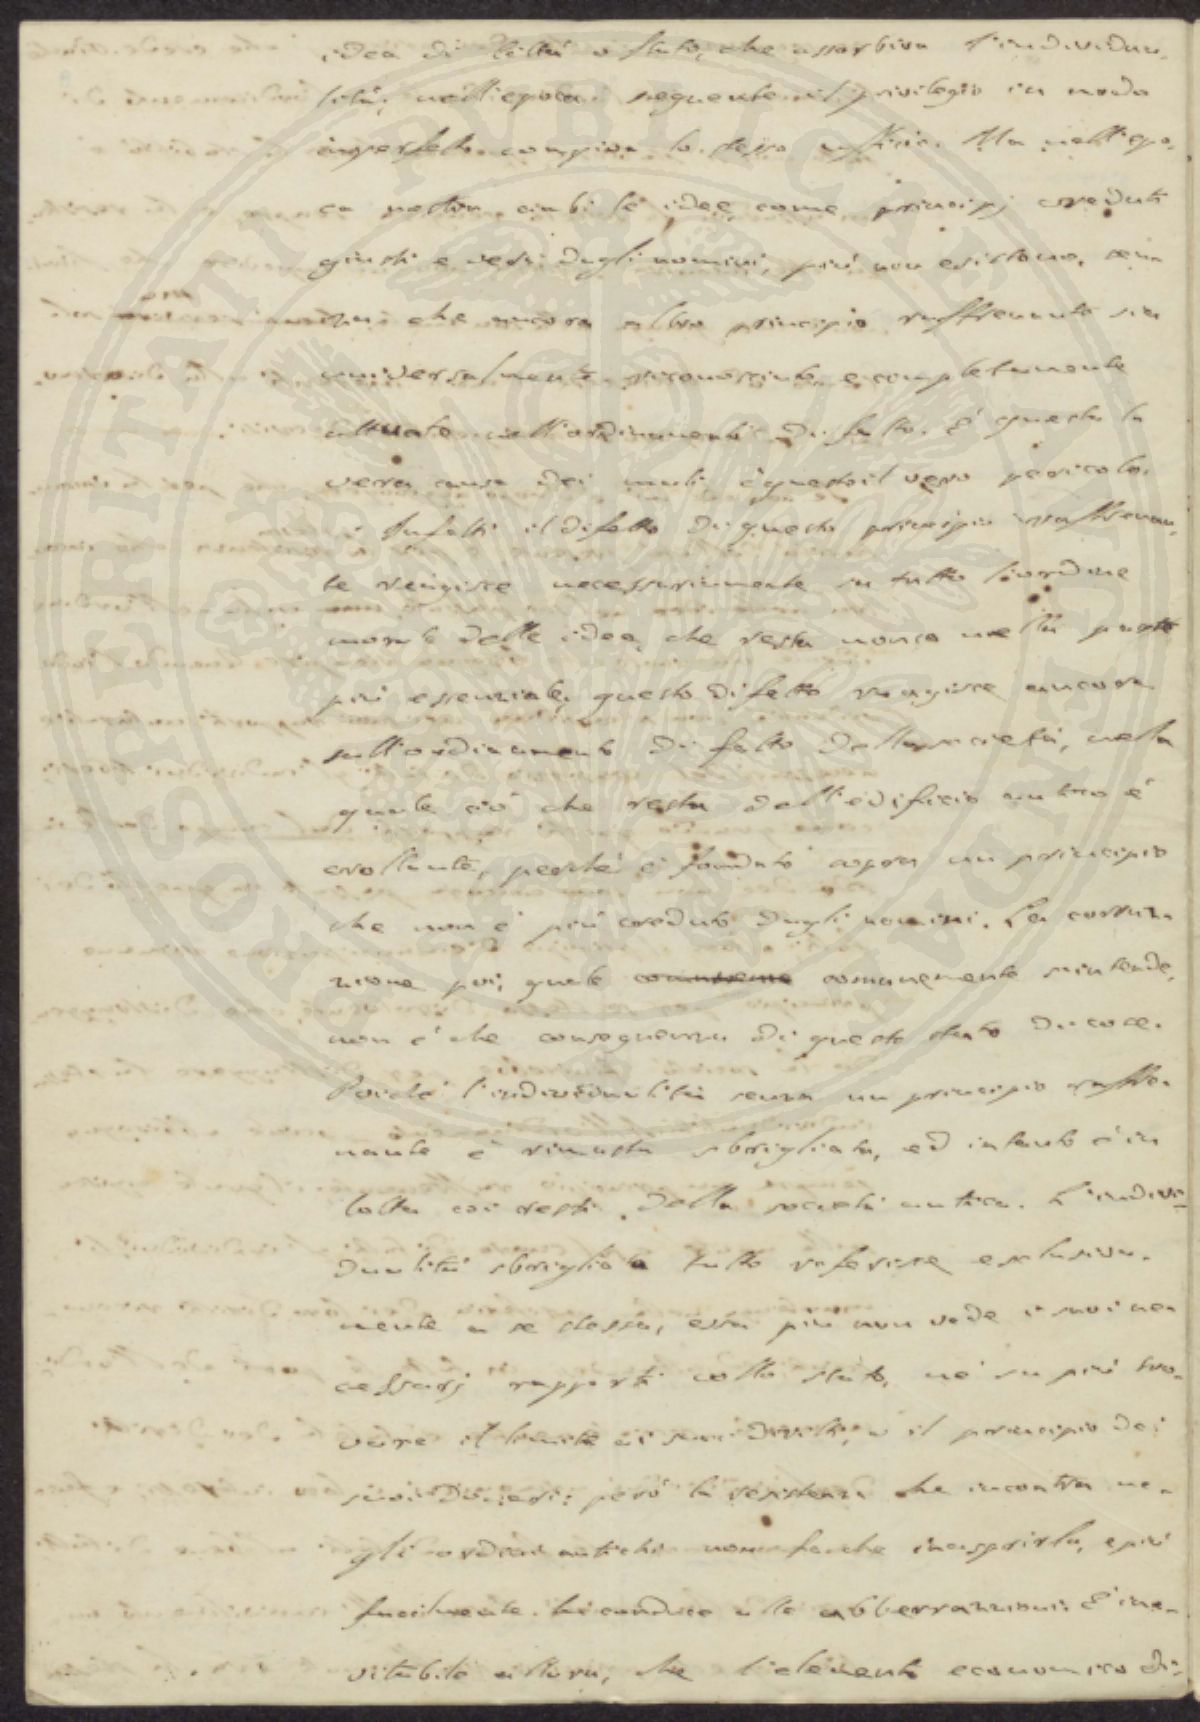 idea di città o stato, che assorbiva l'individua-
lità; nell'epoca seguente il privilegio in modo
imperfetto compiva lo stesso ufficio. Ma nell'epo-
ca nostra ambi le idee, come principj creduti
giusti e veri dagli uomini, più non esistono, sen
za che ancora altro principio raffrenante sia
universalmente riconosciuto, e completamente
attuato nell'ordinamento di fatto. È questa la
vera causa dei mali è questo il vero pericolo.
Infatti il difetto di questo principio raffrenan-
te reagisce necessariamente su tutto l'ordine
morale delle idee, che resta monco nella parte
più essenziale, questo difetto reagisce ancora
sull'ordinamento di fatto della società, nella
quale ciò che resta dell'edificio antico è
crollante, perché è fondato sopra un principio
che non è più creduto dagli uomini. La corru
zione poi, quale comunemente s'intende,
non è che conseguenza di questo stato di cose.
Poiché l'individualità senza un principio raffre-
nante è rimasta sbrigliata, ed intanto è in
lotta coi resti della società antica. L'indivi-
dualità sbrigliata tutto riferisce esclusiva-
mente a se stessa, essa più non vede i suoi ne
cessarj rapporti collo stato, né sa più tro-
vare il limite ai suoi diritti, o il principio dei
suoi doveri; però la resistenza che incontra ne-
gli ordini antichi non fa che inasprirla, e più
facilmente la conduce alle abberrazioni. È ine-
vitabile allora, che l'elemento economico di-
PROSPERITATI PUBLICAE VINDICANDAE